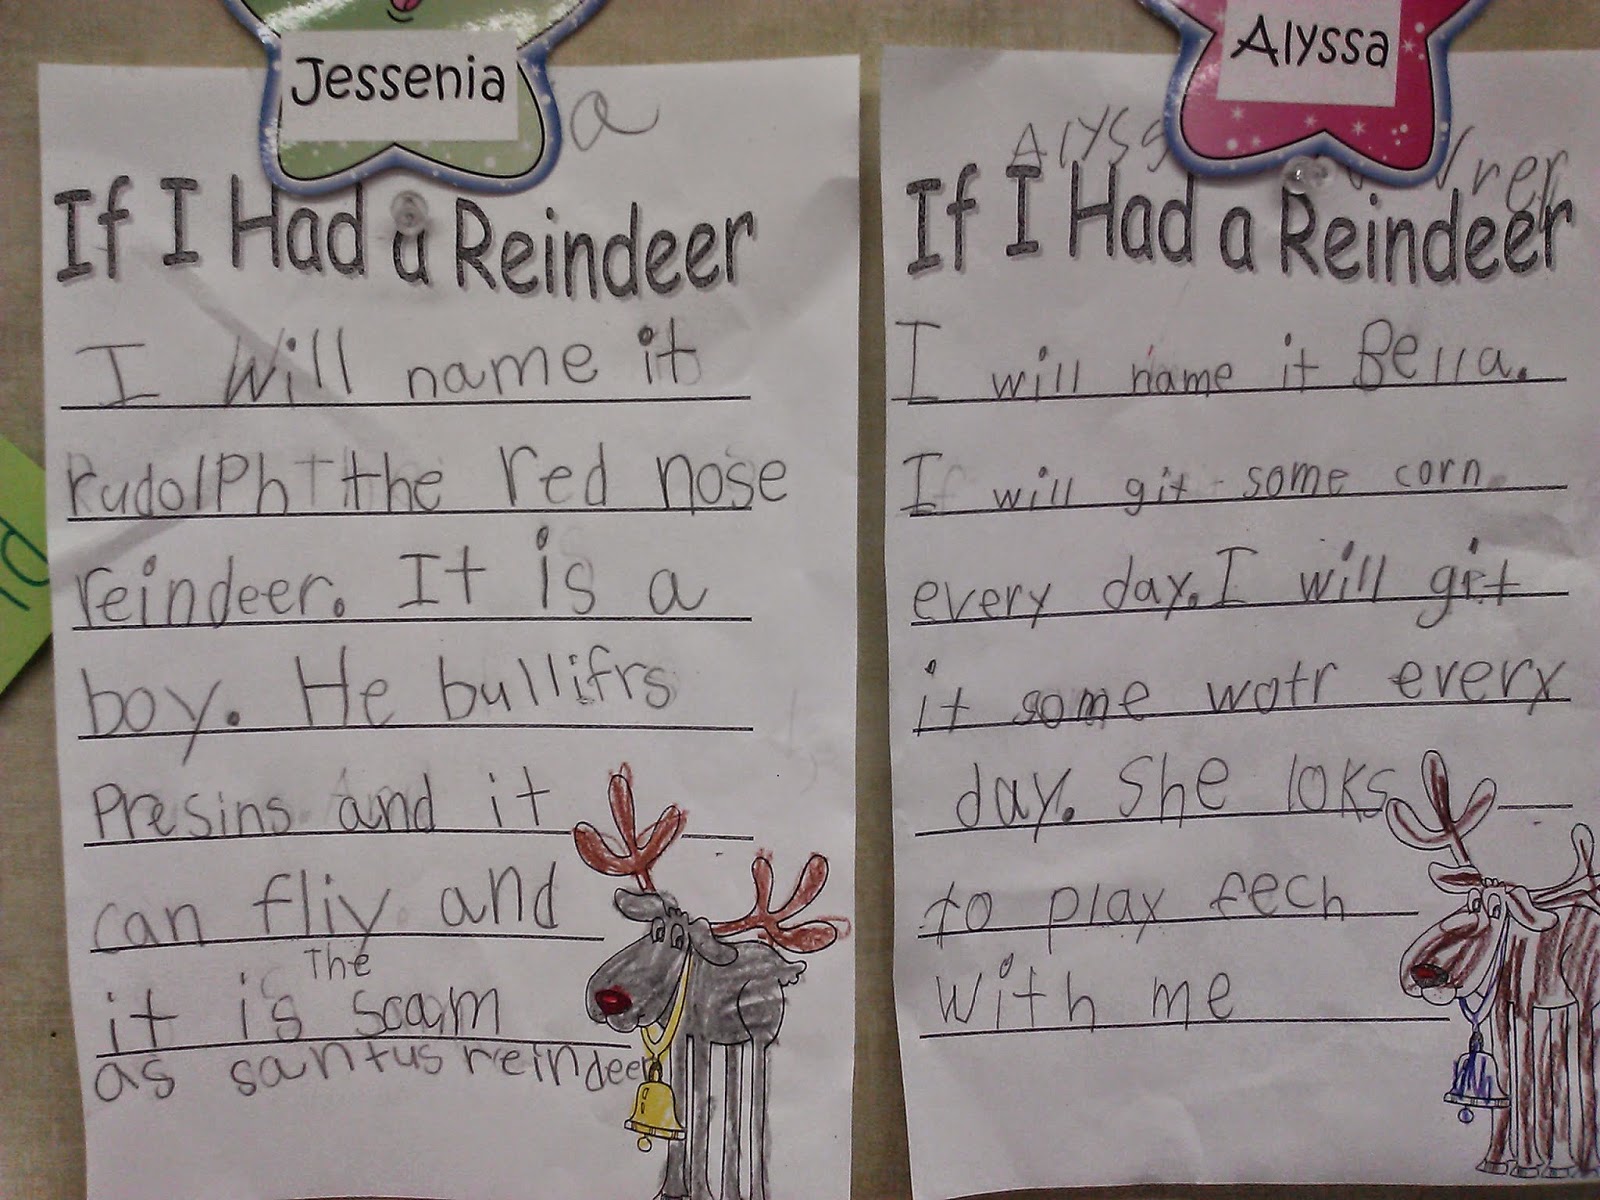 Jessenia
a
If I Had a Reindeer
I will name it
rudolPh the red nose
reindeer. It is a
boy. He bullifrs
Presins and it
can fliy and
The
it is scam
as santus reindeer
Alyssa
If I Had a Reindeer
I will name it Bella.
I will git some corn
every day. I will git
it some wotr every
day. She loks
to play fech
with me